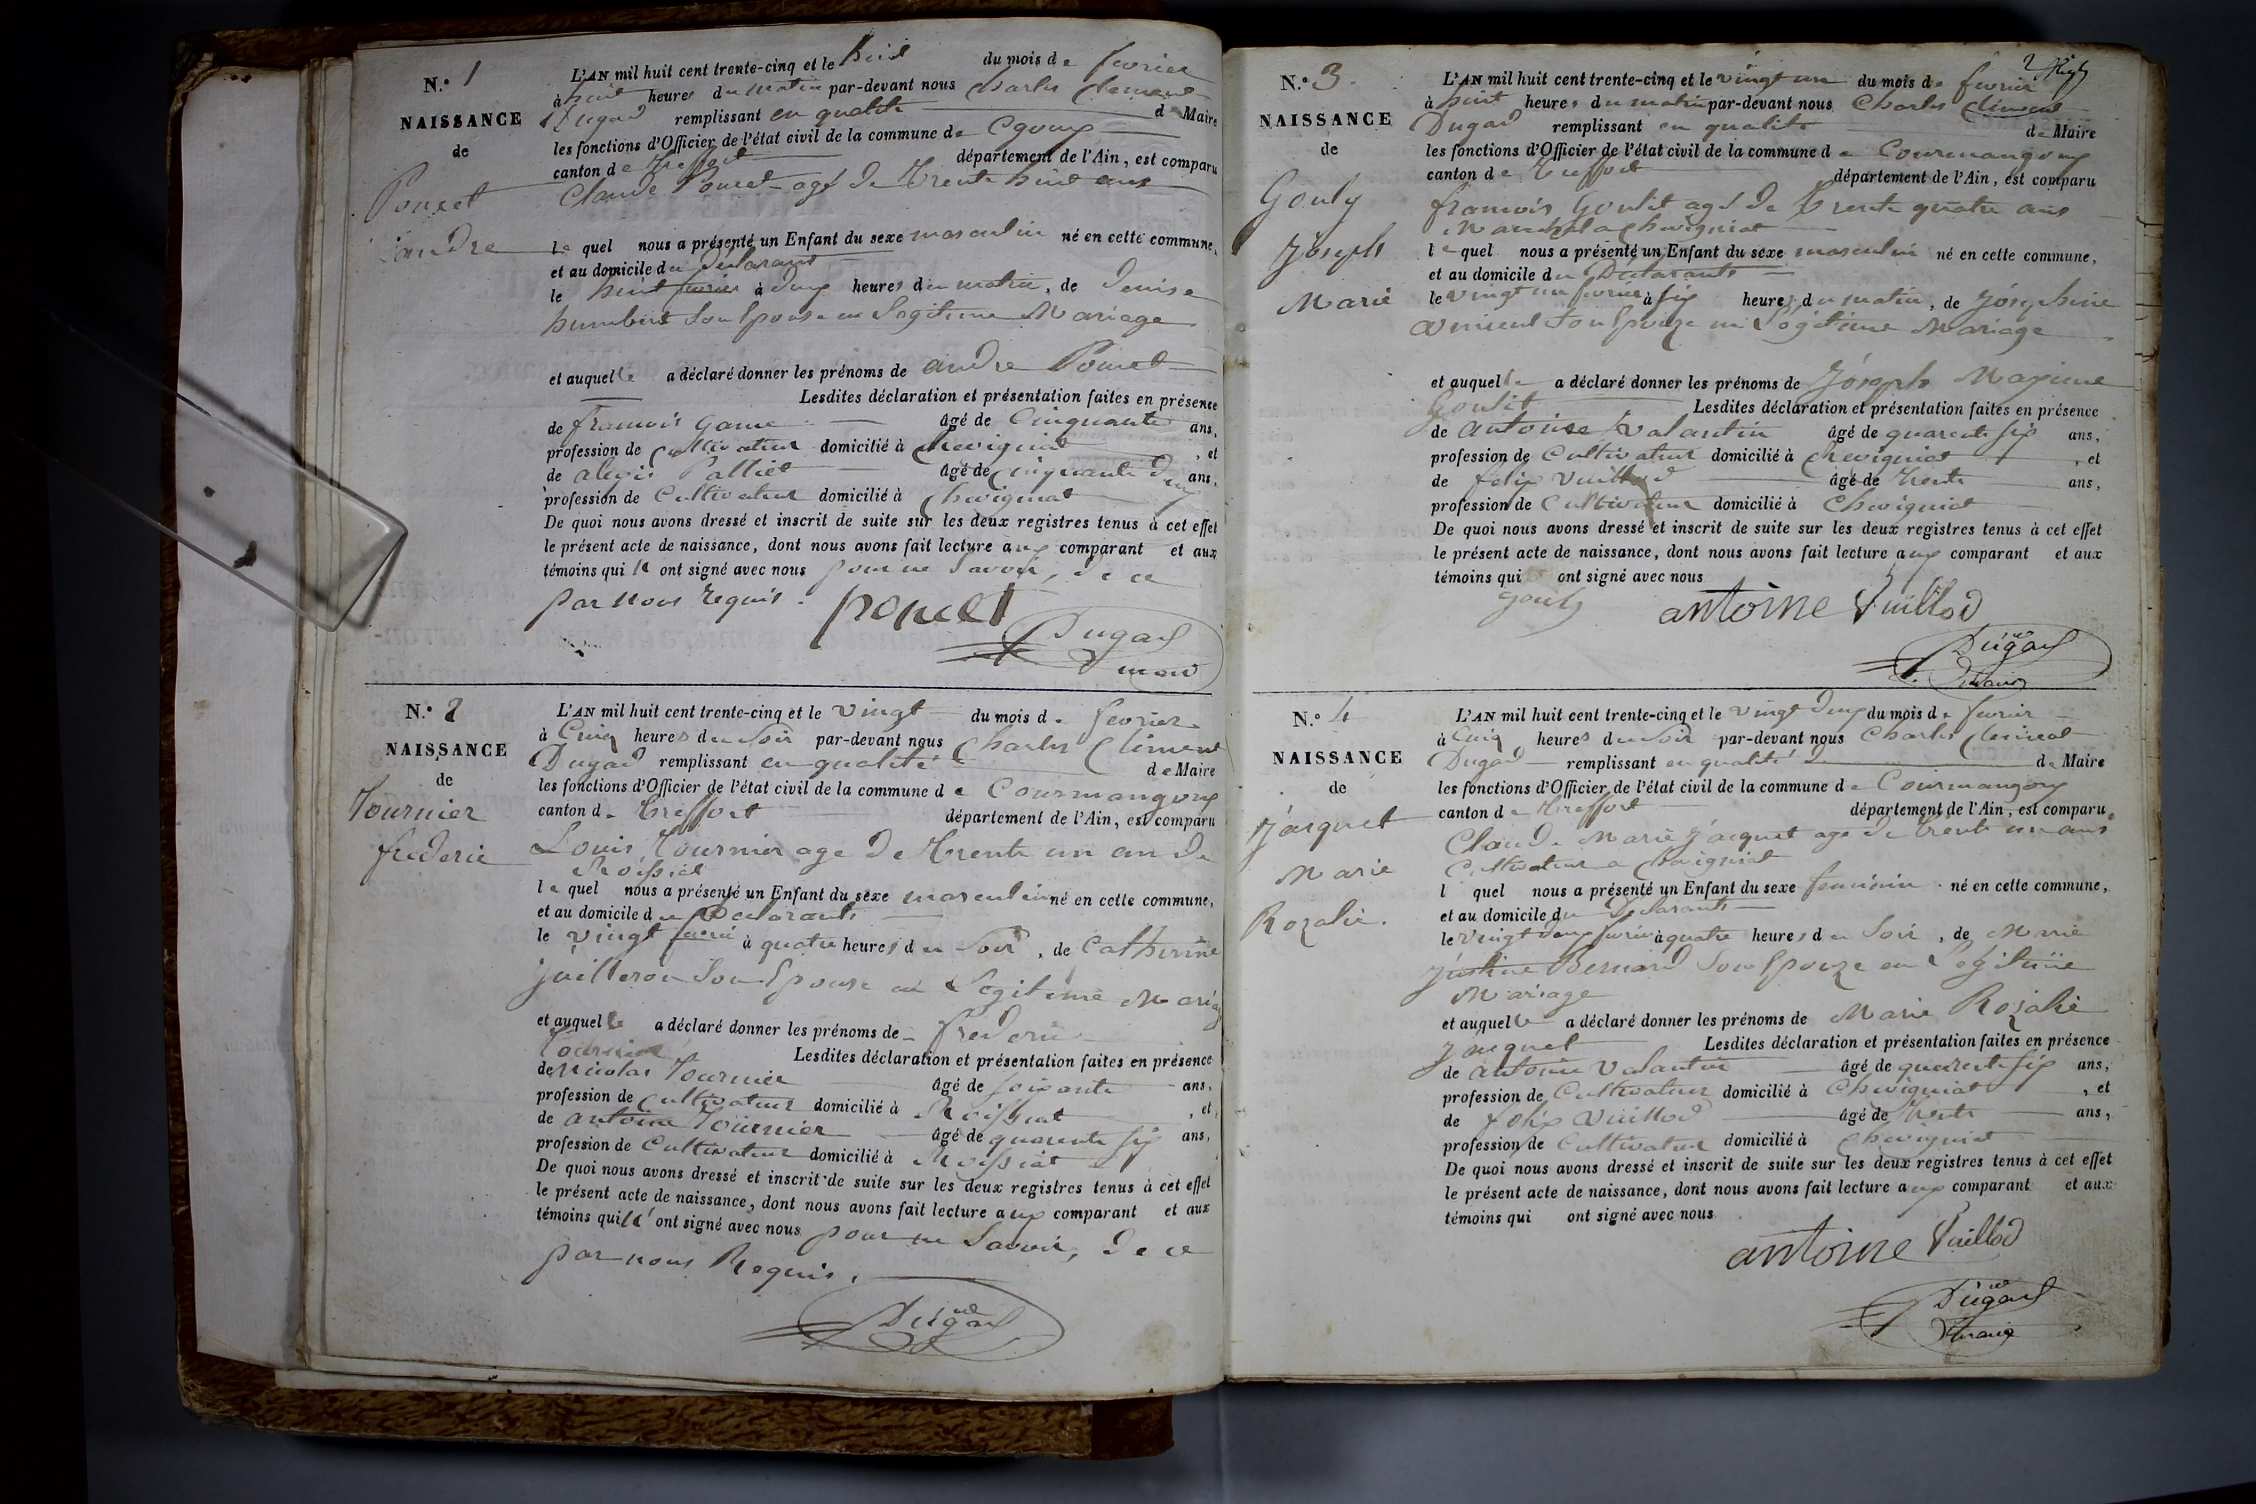 N.° 1
NAISSANCE
de
Poncet
andre
L'AN mil huit cent trente-cinq et le huit du mois de fevrier
à huit heures du matin par-devant nous Charles Clement
Dugad remplissant en qualité de Maire
les fonctions d'Officier de l'état civil de la commune de
canton de Treffort département de l'Ain, est comparu
Claude Poncet agé de Trente huit ans
le quel nous a présenté un Enfant du sexe masculin né en cette commune,
et au domicile du Declarant
le huit fevrier à deux heures du matin, de Denise
humbert Son Epouse en Legitime Mariage
et auquel il a déclaré donner les prénoms de andre Poncet
Lesdites déclaration et présentation faites en présence
de francois Game âgé de Cinquante ans,
profession de Cultivateur domicilié à Chevigniat, et
de alexis Palliet âgé de Cinquante deux ans,
profession de Cultivateur domicilié à Chevigniat
De quoi nous avons dressé et inscrit de suite sur les deux registres tenus à cet effet
le présent acte de naissance, dont nous avons fait lecture aux comparant et aux
témoins qui n'ont signé avec nous pour ne Savoir, de ce
par nous requis.
poncet
Dugad
maire
N.° 2
NAISSANCE
de
Tournier
frederic
L'AN mil huit cent trente-cinq et le vingt du mois de fevrier
à Cinq heures du Soir par-devant nous Charles Clément
Dugad remplissant en qualité de Maire
les fonctions d'Officier de l'état civil de la commune de Courmangoux
canton de Treffort département de l'Ain, est comparu
Louis Tournier age De Trente un an de
Roissiat
le quel nous a présenté un Enfant du sexe masculin né en cette commune,
et au domicile du Declarant
le vingt fevrier à quatre heures du Soir, de Catherine
Juilleron Son Epouse en Legitime Mariage
et auquel il a déclaré donner les prénoms de frederic
Tournier Lesdites déclaration et présentation faites en présence
de Nicolas Tournier âgé de soixante ans,
profession de Cultivateur domicilié à Roissiat, et
de antoine Tournier âgé de quarente six ans,
profession de Cultivateur domicilié à Roissiat
De quoi nous avons dressé et inscrit de suite sur les deux registres tenus à cet effet
le présent acte de naissance, dont nous avons fait lecture aux comparant et aux
témoins qui n'ont signé avec nous pour ne Savoir, de ce
par nous Requis.
Dugad
N.° 3
NAISSANCE
de
Gouly
Joseph
Marie
L'AN mil huit cent trente-cinq et le vingt un du mois de fevrier
à huit heures du matin par-devant nous Charles Clément
Dugad remplissant en qualité de Maire
les fonctions d'Officier de l'état civil de la commune de Courmangoux
canton de Treffort département de l'Ain, est comparu
francois Goulit agé de Trente quatre ans
Marechal a Chevigniat
le quel nous a présenté un Enfant du sexe masculin né en cette commune,
et au domicile du Declarant
le vingt un fevrier à six heures du matin, de Joséphine
Son Epouze en Légitime Mariage
et auquel il a déclaré donner les prénoms de Joseph
Goulit Lesdites déclaration et présentation faites en présence
de antoine Valantin âgé de quarente six ans,
profession de Cultivateur domicilié à Chevigniat, et
de felix Vuillod âgé de Trente ans,
profession de Cultivateur domicilié à Chevigniat
De quoi nous avons dressé et inscrit de suite sur les deux registres tenus à cet effet
le présent acte de naissance, dont nous avons fait lecture aux comparant et aux
témoins qui ont signé avec nous
Gouly antoine Vuillod
Dugad
maire
N.° 4
NAISSANCE
de
Jacquet
Marie
Rozalie.
L'AN mil huit cent trente-cinq et le vingt deux du mois de fevrier
à Cinq heures du Soir par-devant nous Charles Clement
Dugad remplissant en qualité de Maire
les fonctions d'Officier de l'état civil de la commune de Courmangoux
canton de Treffort département de l'Ain, est comparu
Claude Marie Jacquet age de trente un ans
Cultivateur a Chevigniat
l quel nous a présenté un Enfant du sexe feminin né en cette commune,
et au domicile du Declarant
le vingt deux fevrier à quatre heures du Soir, de Marie
Justine Bernard Son Epouze en Légitime
Mariage
et auquel il a déclaré donner les prénoms de Marie Rozalie
Jacquet Lesdites déclaration et présentation faites en présence
de antoine Valantin âgé de quarente six ans,
profession de Cultivateur domicilié à Chevigniat, et
de felix Vuillod âgé de Trente ans,
profession de Cultivateur domicilié à Chevigniat
De quoi nous avons dressé et inscrit de suite sur les deux registres tenus à cet effet
le présent acte de naissance, dont nous avons fait lecture aux comparant et aux
témoins qui ont signé avec nous
antoine Vuillod
Dugad
maire